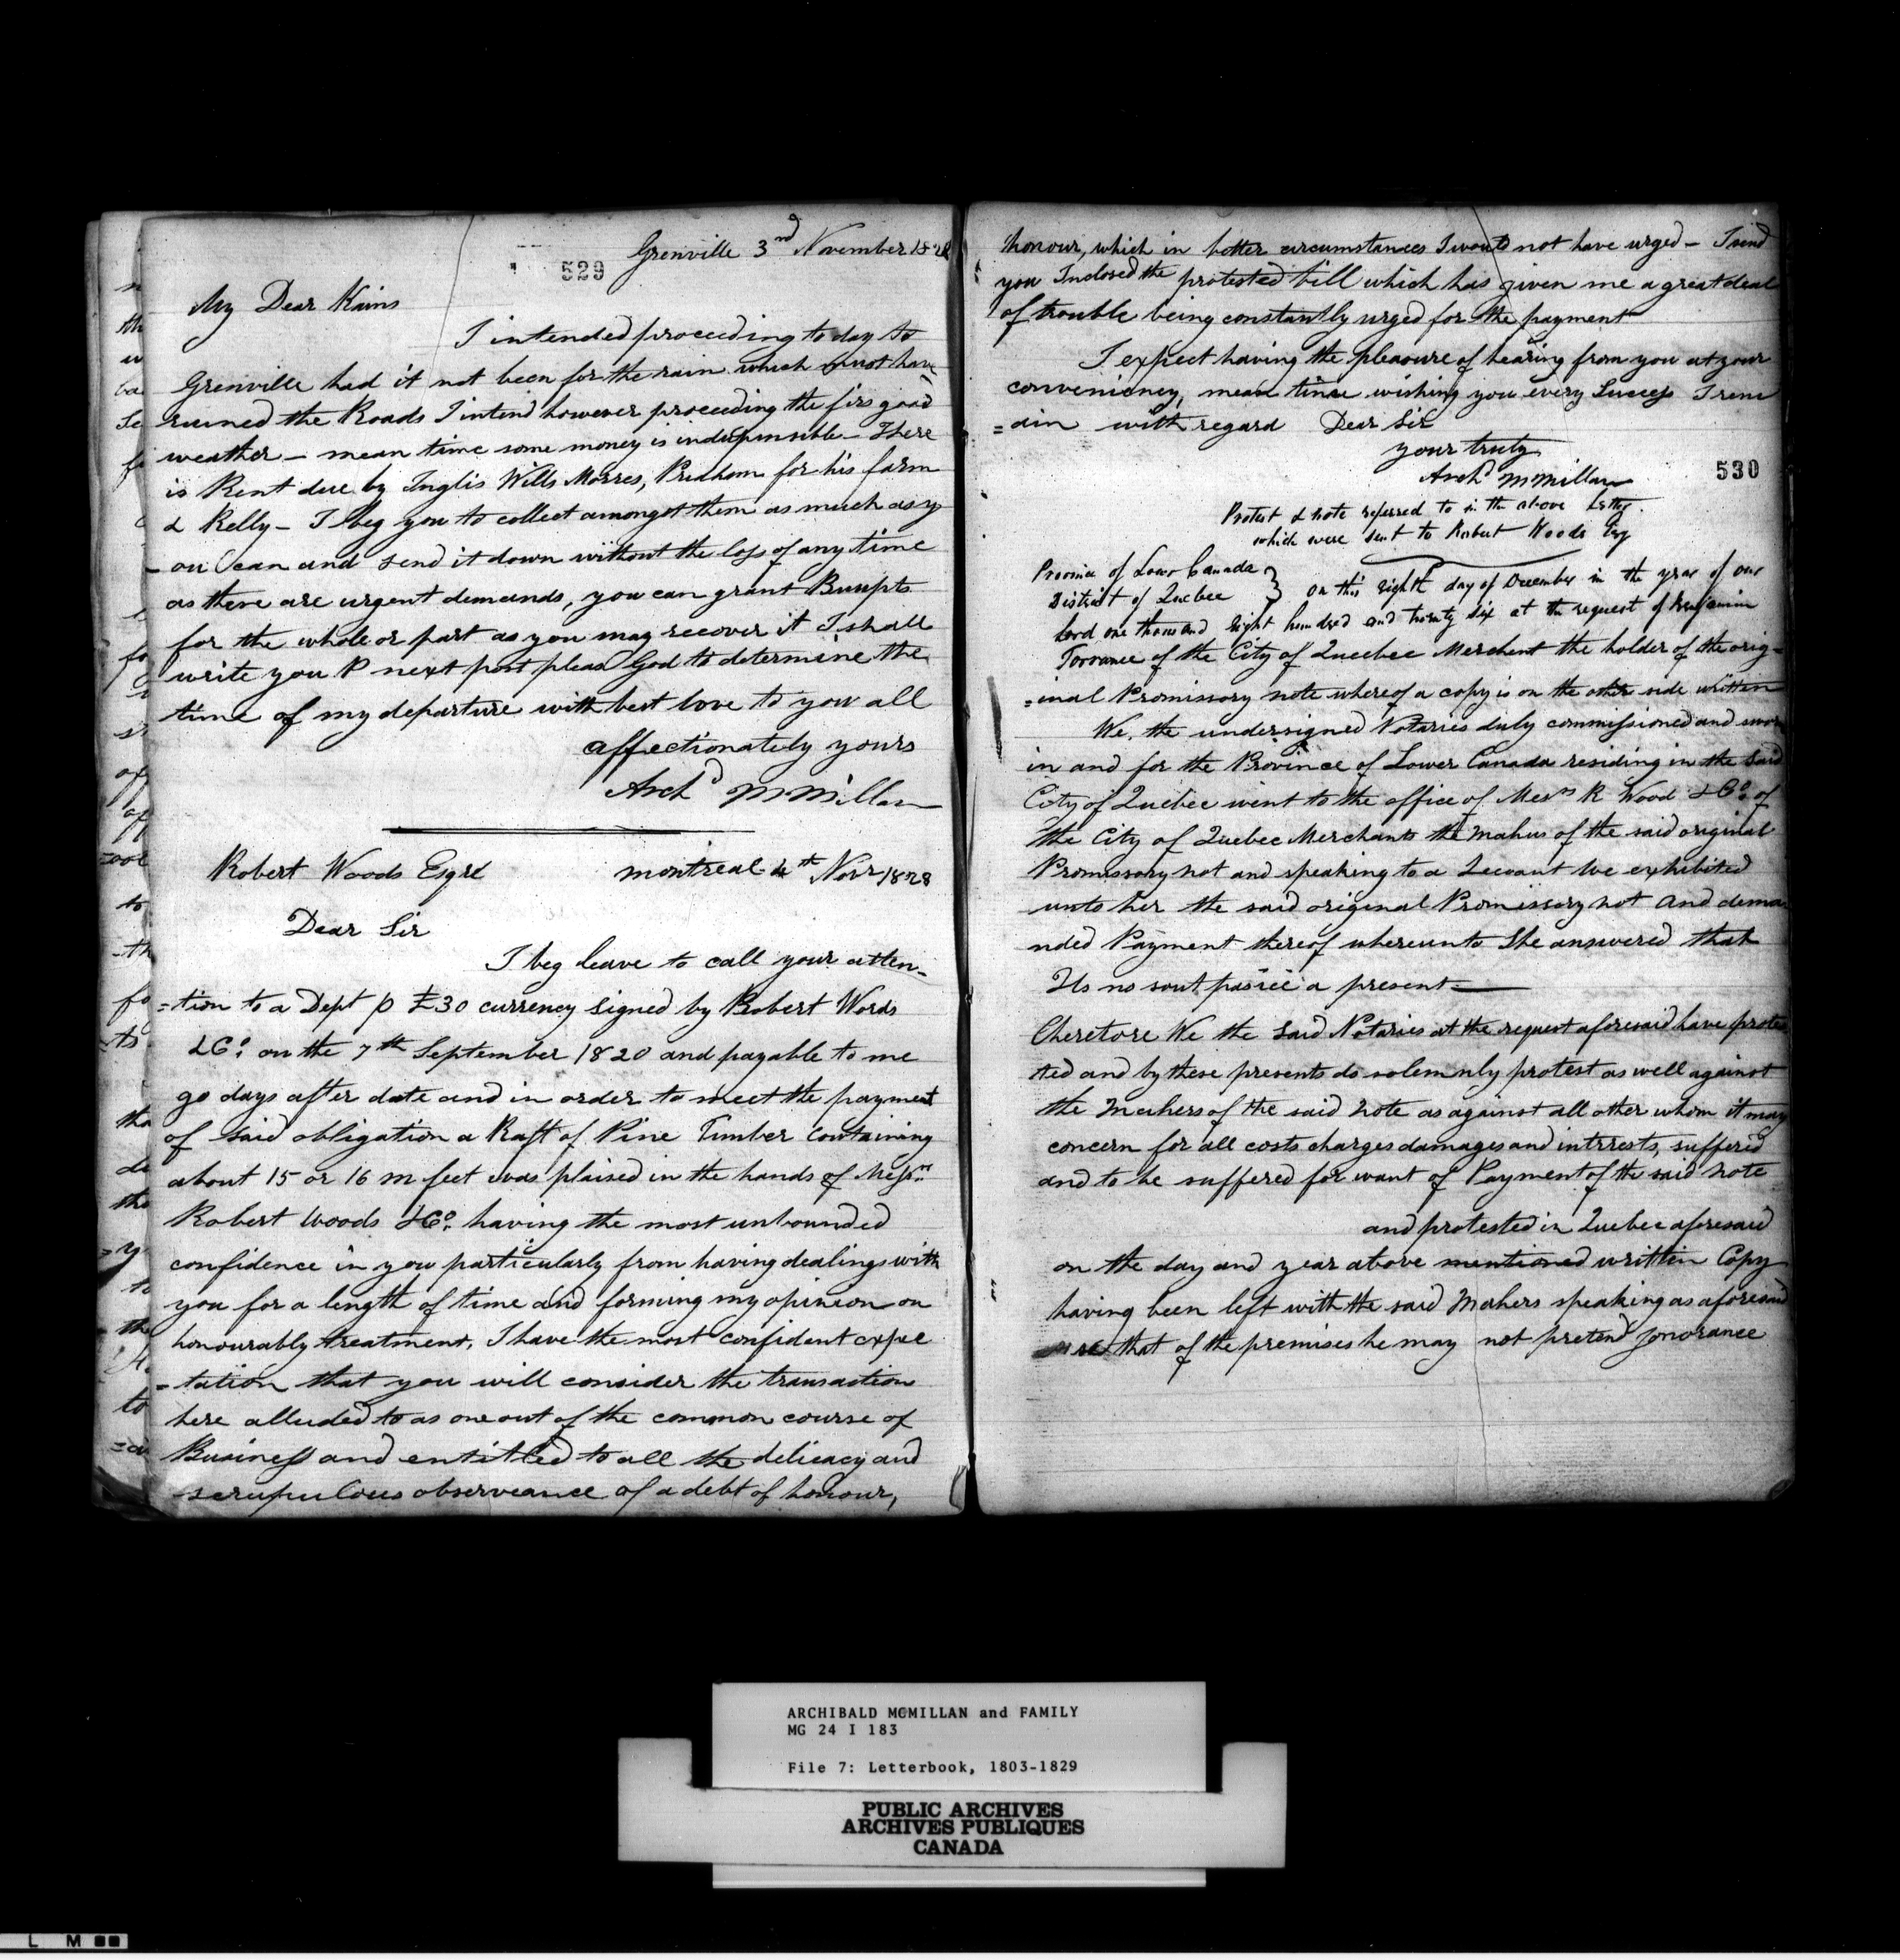 Grenville 3nd November 1828
529
My Dear Kains
I intended proceeding to day to
Grenville had it not been for the rain which must have
ruined the Roads I intend however proceeding the firs good
weather - mean time some money is indispensible - There
is Rent due by Inglis Wills Morres, Pridham for his farm
& Kelly - I beg you to collect amongst them as much as y
- ou can and send it down without the loss of any time
as there are urgent demands, you can grant
for the whole or part as you may recover it I shall
write you P next post pleas God to determine the
time of my departure with best love to you all
affectionately yours
Archd McMillan
Robert Woods Esqre montreal 4th Novr 1828
Dear Sir
I beg leave to call your atten-
=tion to a Dept p £30 currency signed by Robert Woods
& Co. on the 7th September 1820 and payable to me
90 days after date and in order to meet the payment
of said obligation a Raft of Pine Timber containing
about 15 or 16 m feet was plaised in the hands of Messrs
Robert Woods & Co. having the most unbounded
confidence in you particularly from having dealings with
you for a length of time and forming my opinion on
honourably treatment, I have the most confident expec
=tation that you will consider the transaction
here alluded to as one out of the common course of
Business and entitled to all the delicacy and
scrupulous observeance of a debt of honour,
honour, which in better circumstances I would not have urged - I send
you Inclosed the protested bill which has given me a great deal
of trouble being constantly urged for the payment
I expect having the pleasure of hearing from you at your
conveniency, mean time wishing you every Success I rem
=ain with regard Dear Sir
your truly
Archd McMillan
530
Protest & note referred to in the above letter.
which were sent to Robert Woods Esq
Province of Lower Canada }
District of Quebec } on this eighth day of December in the year of our
Lord one thousand Eight hundred and twenty six at the request of Benjamin
Torrance of the City of Queebec Merchent the holder of the orig-
=inal Promissory note whereof a copy is on the other side written
We, the undersigned Notaries duly commissioned and sworn
in and for the Province of Lower Canada residing in the Said
City of Quebec went to the office of Messrs R Wood & Co. of
the City of Quebec Merchants the Makers of the said original
Promissory not and speaking to a Servant We exhibited
unto her the said original Promissory not and dema
nded Payment thereof whereunto She answered that
Ils no sont a present
Therefore We the Said Notaries at the request aforesaid have protes
ted and by these presents do solemnly protest as well against
the Makers of the said note as against all other whom it may
concern for all costs charges damages and intrrests, suffered
and to be suffered for want of Payment of the said note
and protested in Quebec aforesaid
on the day and year above mentioned written Copy
having been left with the said Makers speaking as aforesaid
that of the premises he may not pretend ignorance
ARCHIBALD MCMILLAN and FAMILY
MG 24 I 183
File 7: Letterbook, 1803-1829
PUBLIC ARCHIVES
ARCHIVES PUBLIQUES
CANADA
L M